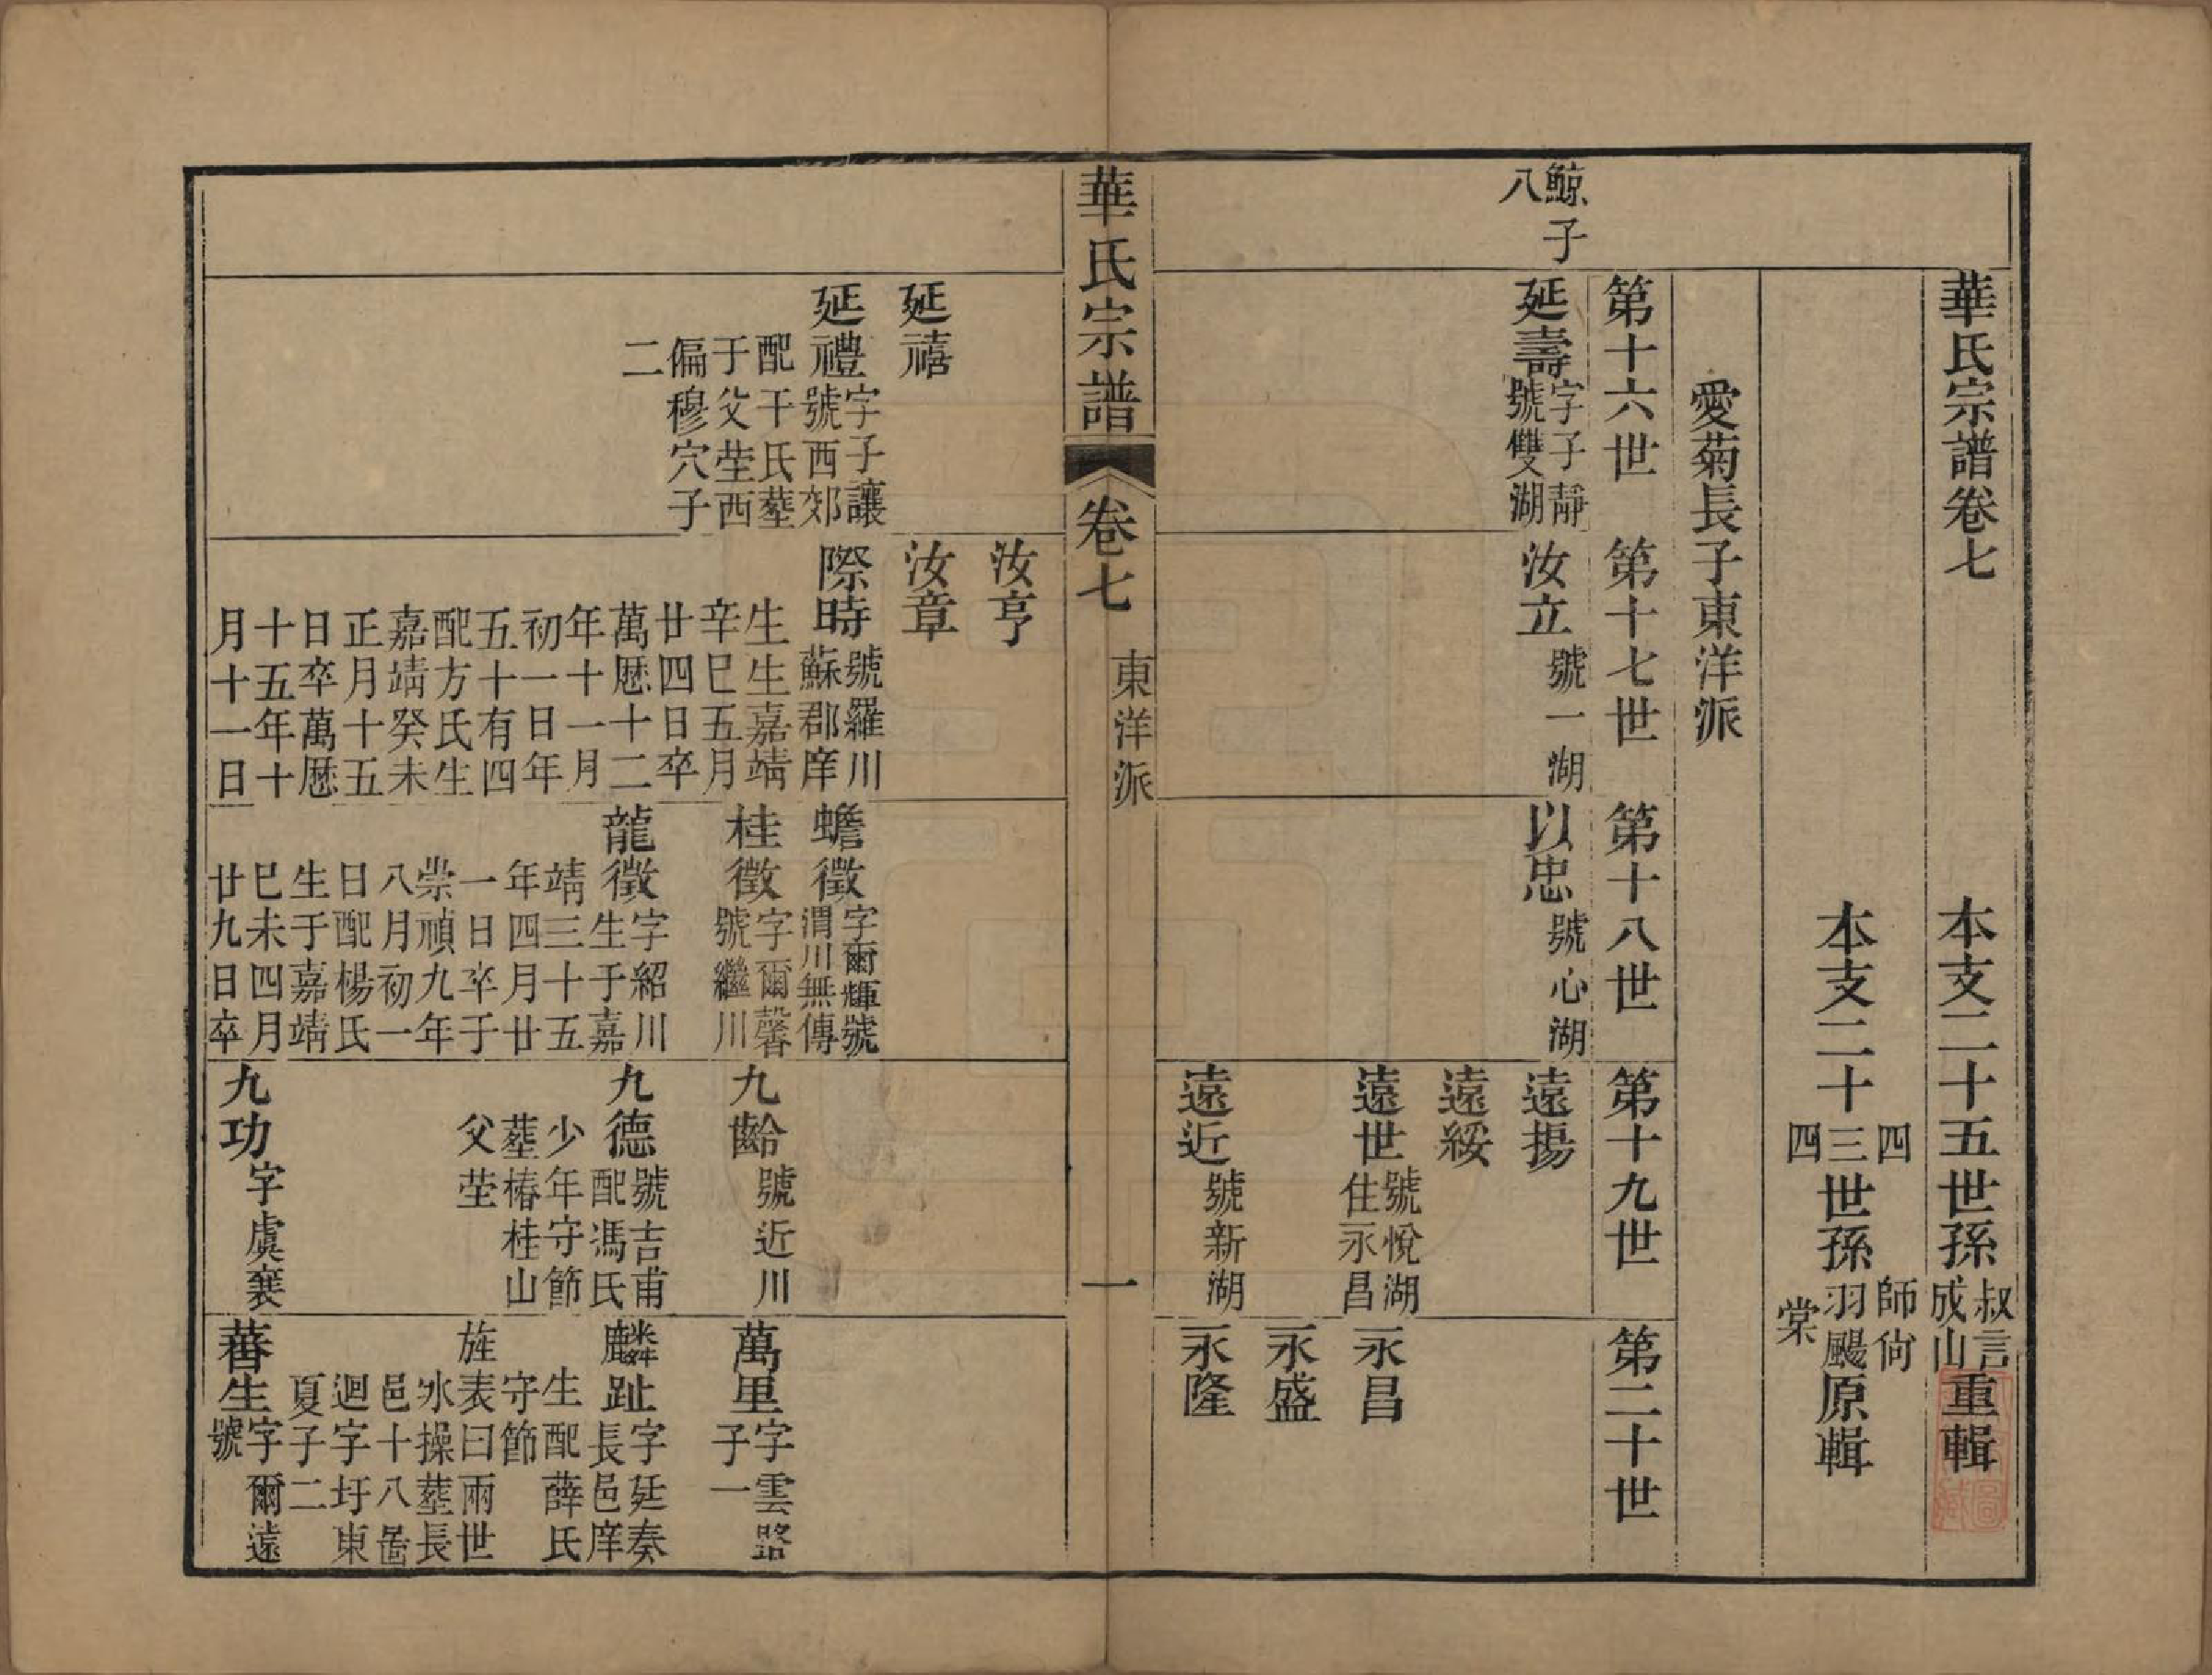 華氏宗譜卷七
本支二十五世孫叔言成山重輯
本支二十四三四世孫師尙羽颺棠原輯
愛菊長子東洋派
第十六世
第十七世
第十八世
第十九世
第二十世
鯨子
八
延壽字子靜
號雙湖
汝立號一湖
以忠號心湖
遠揚
遠綏
遠世號悅湖
住永昌
永昌
永盛
遠近號新湖
永隆
華氏宗譜
卷七
東洋派
一
汝亨
延禧
汝章
延禮字子讓
號西郊
配干氏塟
于父塋西
偏穆穴子
二
際時號羅川
蘇郡庠
生生嘉靖
辛巳五月
廿四日卒
萬厯十二
年十一月
初一日年
五十有四
配方氏生
嘉靖癸未
正月十五
日卒萬厯
十五年十
月十一日
蟾徵字爾輝號
渭川無傳
桂徵字爾馨
號繼川
龍徵字紹川
生于嘉
靖三十五
年四月廿
一日卒于
崇禎九年
八月初一
日配楊氏
生于嘉靖
己未四月
廿九日卒
九齡號近川
九德號吉甫
配馮氏
少年守節
塟椿桂山
父塋
九功字虞襄
萬里字雲路
子一
麟趾字廷奏
長邑庠
生配薛氏
守節
旌表曰兩世
氷操塟長
邑十八啚
迴字圩東
夏子二
蕃生字爾遠
號